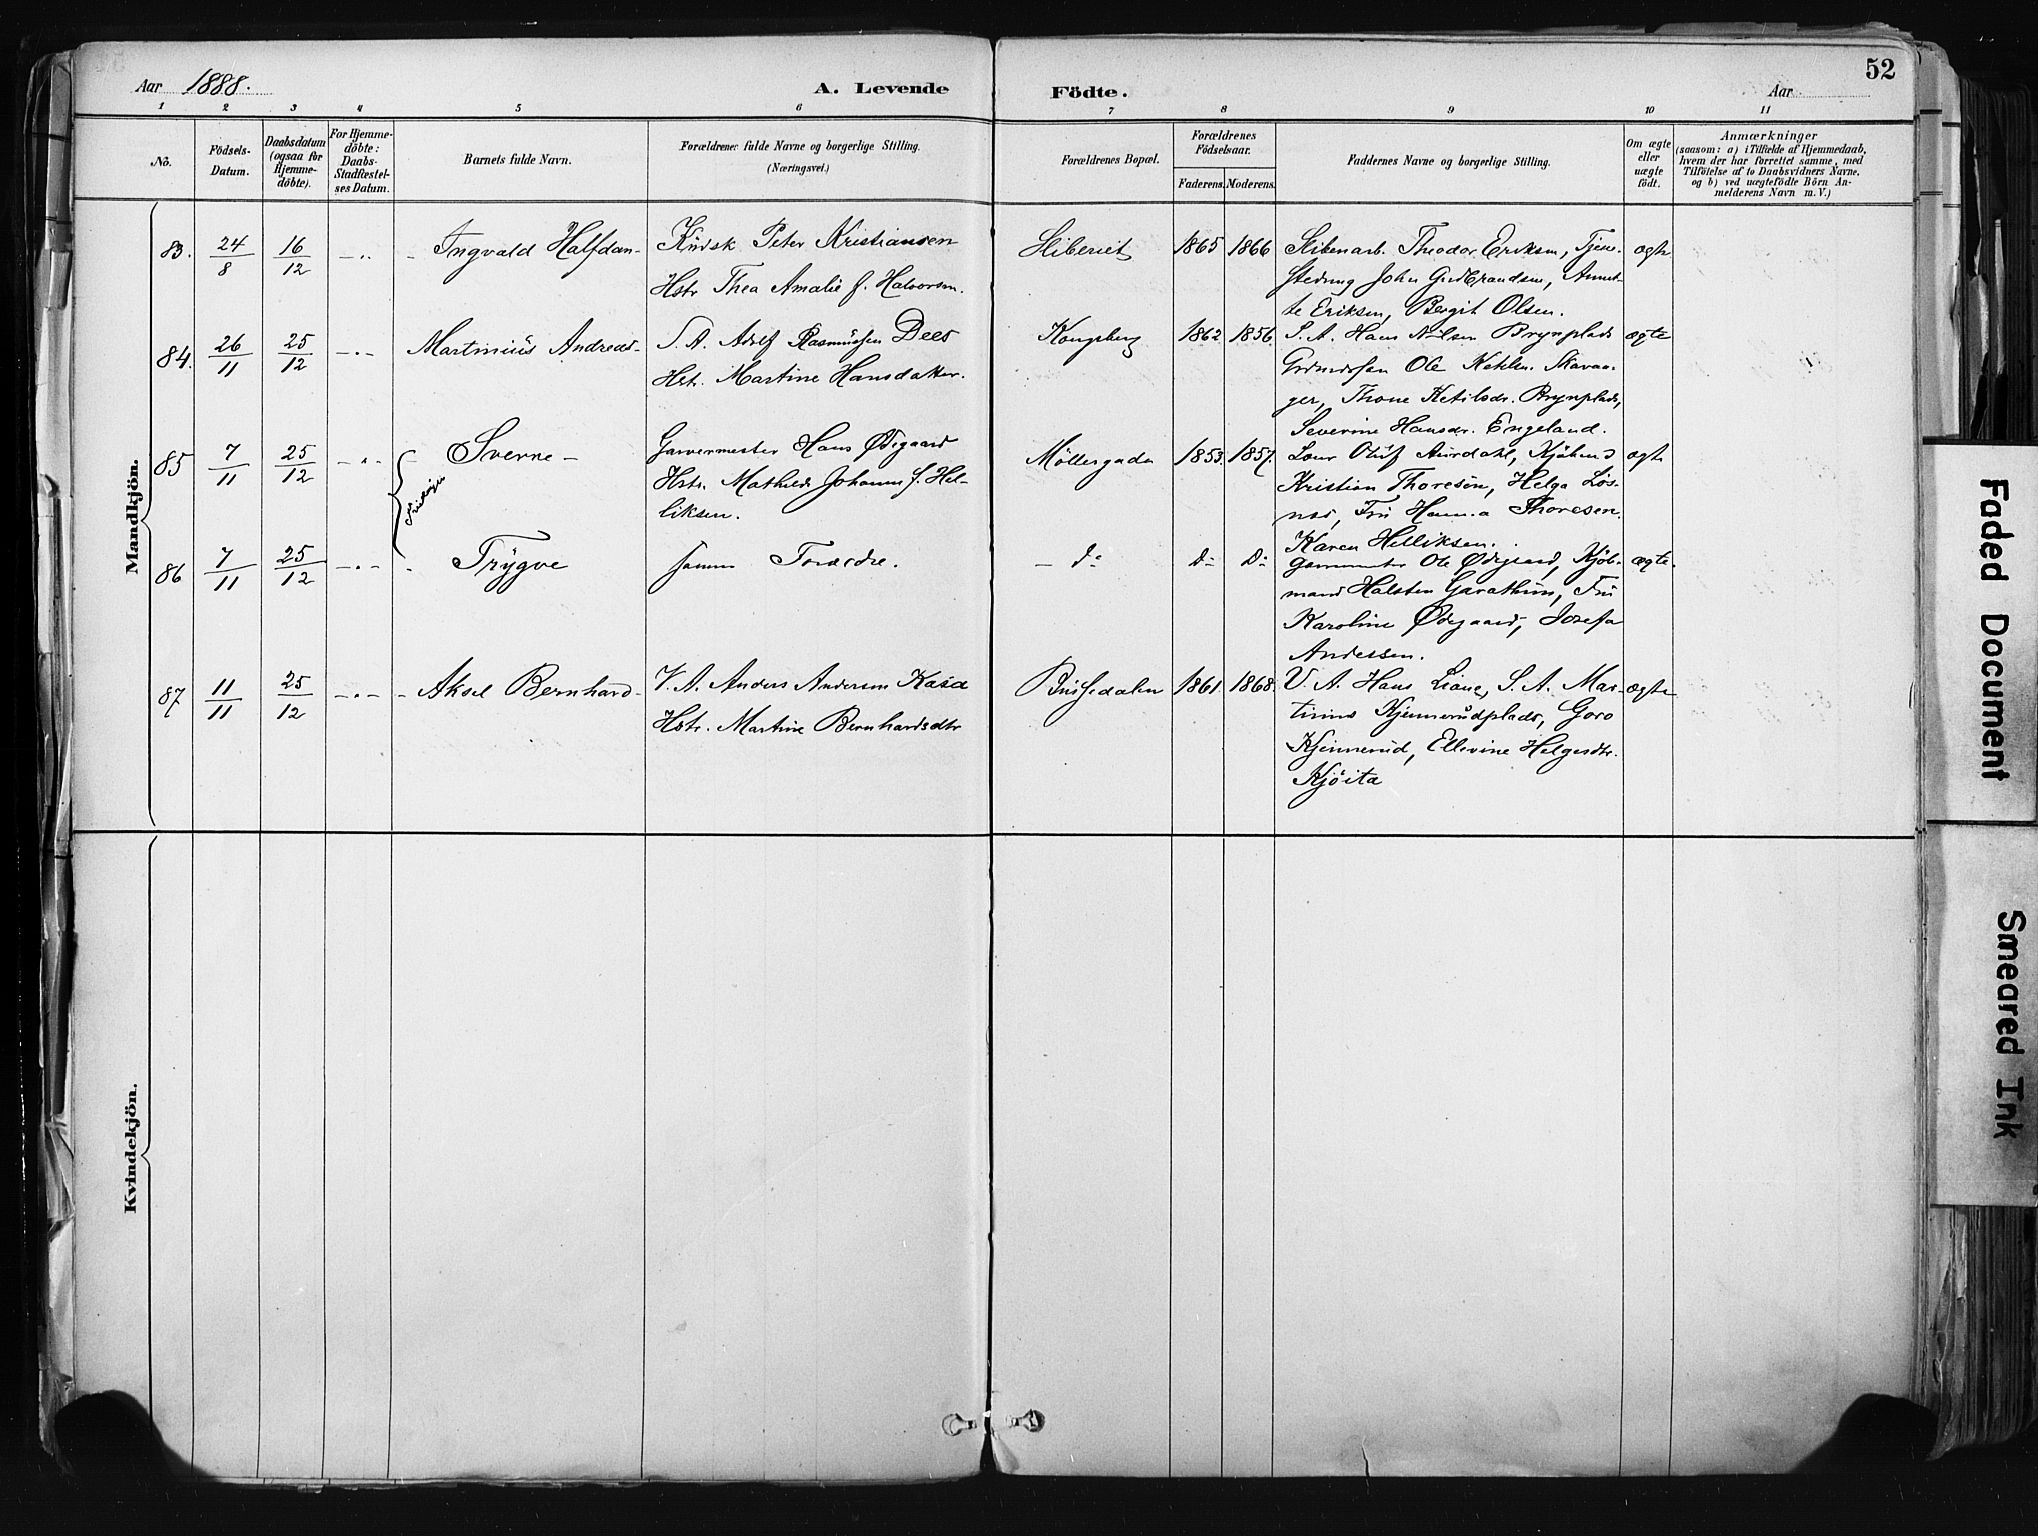 Aar 1888.
A. Levende Födte.
Aar
52
1 2 3 4 5 6 7 8 9 10 11
No.
Födsels-
Datum.
Daabsdatum
(ogsaa for
Hjemme-
döbte).
For Hjemme-
döbte:
Daabs-
Stadfæstel-
ses Datum.
Barnets fulde Navn.
Forældrenes fulde Navne og borgerlige Stilling.
(Næringsvei.)
Forældrenes Bopæl.
Forældrenes
Födselsaar.
Faderens. Moderens.
Faddernes Navne og borgerlige Stilling.
Om ægte
eller
uægte
födt.
Anmærkninger
(saasom: a) i Tilfælde af Hjemmedaab,
hvem der har forrettet samme, med
Tilföielse af to Daabsvidners Navne,
og b) ved uægtefödte Börn An-
melderens Navn m. V.)
Mandkjön.
83. 24/8 16/12 Ingvald Halfdan
Kudsk Peter Kristiansen
Hstr Thea Amalie f. Halvorsen.
Sliberiet 1865 1866
Slibenarb. Theodor Eriksen, Tjene-
John Gudbrandsen, Annet-
te Eriksen, Bergit Olsen.
ægte
84. 26/11 25/12 Martinius Andreas
S. A. Adolf Rasmussen Dees
Hstr. Martine Hansdatter.
Kongsberg 1862 1856.
S. A. Hans Nilsen Brynplads
Ole Ketilsn. Skavan-
ger, Thone Ketilsdr. Brynplads,
Severine Hansdr. Engeland.
ægte
85 7/11 25/12 Sverre
Tvillinger
Garvermester Hans Ødegaard
Hstr. Mathilde Johanne f. Hel-
liksen.
Möllergaden 1853. 1857.
Oluf Aurdahl, Kjöbmd
Kristian Thoresen, Helga Lös-
nes, Fru Hanna Thoresen.
Karen Helliksen.
ægte
86 7/11 25/12 Trygve
samme Forældre.
do Do Do
Garvermester Ole Ødegaard, Kjöb-
mand Halsten Garathun, Fru
Karoline Ødegaard, Josefa
Andersen.
ægte.
87 11/11 25/12 Aksel Bernhard
V. A. Anders Andersen Kasa
Hstr. Martine Bernhardsdtr
Bussedalen 1861. 1868.
V. A. Hans Liane, S. A. Mar-
tinius Kjennerudplads, Goro
Kjennerud, Ellevine Helgesdtr.
Kjöita
ægte
Kvindekjön.
Faded Document
Smeared Ink